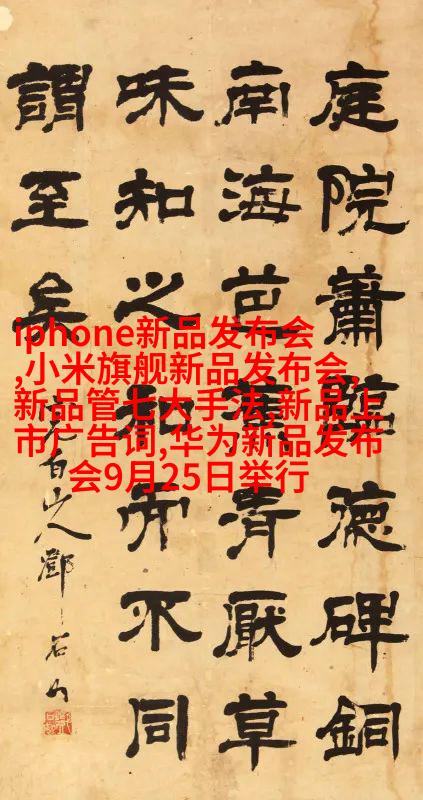 iphone新品发布会
,小米旗舰新品发布会,
新品管七大手法,新品上
市广告词,华为新品发布
会9月25日举行
庭院蕭臨德碑銅
南海芭青厭草
味知之知而不同
謂至矣
完白山人鄧石如